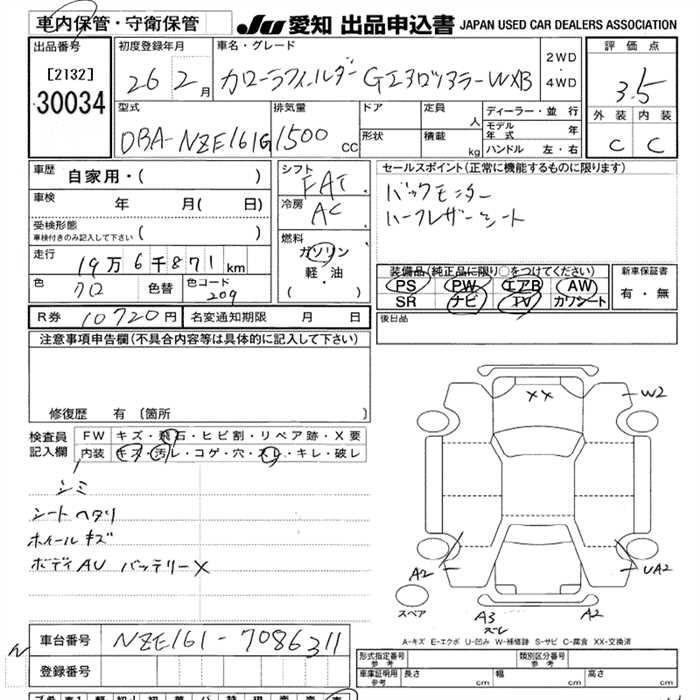 車内保管・守衛保管
JU 愛知 出品申込書 JAPAN USED CAR DEALERS ASSOCIATION
出品番号
[2132]
30034
初度登録年月
26 2月
車名・グレード
カローラフィルダー Gエアロツアラー WXB
2WD
・
4WD
評価点
3.5
外装 内装
C C
型式
DBA-NZE161G
排気量
1500 cc
ドア
形状
定員 人
積載 kg
ディーラー・並行
モデル年式 年
ハンドル 左・右
車歴 自家用・( )
車検 年 月( 日)
受検形態
車検付きのみ記入して下さい ( )
走行
19万6千871km
色 クロ 色替 色コード 209
シフト
FAT
冷房
AC
燃料
ガソリン
軽・油
( )
セールスポイント(正常に機能するものに限ります)
バックモニター
ハーフレザーシート
装備品(純正品に限り○をつけてください)
PS PW エアB AW
SR ナビ TV カワシート
新車保証書
有・無
R券 10720円 名変通知期限 月 日
後日品
注意事項申告欄(不具合内容等は具体的に記入して下さい)
修復歴 有 〔箇所 〕
検査員
記入欄
FW キズ・飛石・ヒビ割・リペア跡・X要
内装 キズ・汚レ・コゲ・穴・スレ・キレ・破レ
シミ
シートヘタリ
ホイールキズ
ボディAU バッテリーX
XX
W2
A2
UA2
スペア
A3
スレ
A2
A-キズ E-エクボ U-凹み W-補修跡 S-サビ C-腐食 XX-交換済
車台番号 NZE161-7086311
登録番号
形式指定番号
参考
類別区分番号
参考
車庫証明用
参考
長さ cm 幅 cm 高さ cm